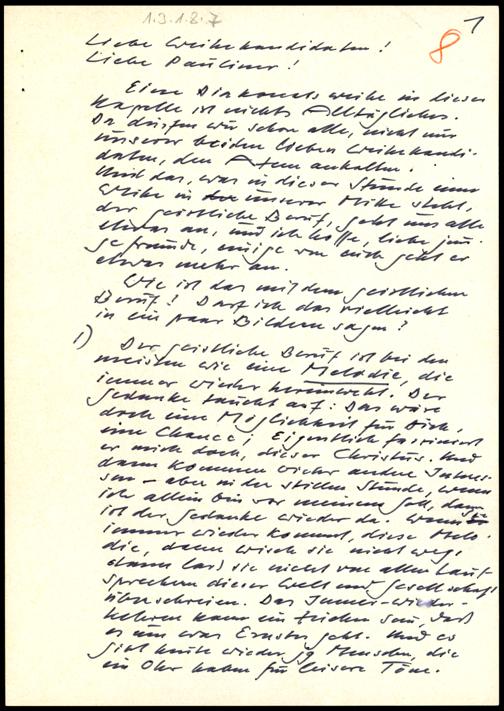 1.3.1.8.7
1
8
Liebe Weihekandidaten!
Liebe Pauliner!
Eine Diakonatsweihe in dieser
Kapelle ist nichts Alltägliches.
Da dürfen wir schon alle, nicht nur
unsere beiden lieben Weihekandi-
daten, den Atem anhalten.
Und das, was in dieser Stunde einer
Weihe in unserer Mitte steht,
der geistliche Beruf, geht uns alle
etwas an, und ich hoffe, liebe jun-
ge Freunde, einige von euch geht er
etwas mehr an.
Wie ist das mit dem geistlichen
Beruf? Darf ich das vielleicht
in ein paar Bildern sagen?
1) Der geistliche Beruf ist bei den
meisten wie eine Melodie, die
immer wieder hereinweht. Der
Gedanke taucht auf: Das wäre
doch eine Möglichkeit für Dich,
eine Chance; Eigentlich fasziniert
er mich doch, dieser Christus. Und
dann kommen wieder andere Interes-
sen - aber in der stillen Stunde, wenn
ich allein bin vor meinem Gott, dann
ist der Gedanke wieder da. Wenn sie
immer wieder kommt, diese Melo-
die, dann wisch sie nicht weg,
dann lass sie nicht von allen Laut-
sprechern dieser Welt und Gesellschaft
überschreien. Das Immer-wieder-
kehren kann ein Zeichen sein, daß
es um was Ernstes geht. Und es
gibt heute wieder jg Menschen, die
ein Ohr haben für leisere Töne.